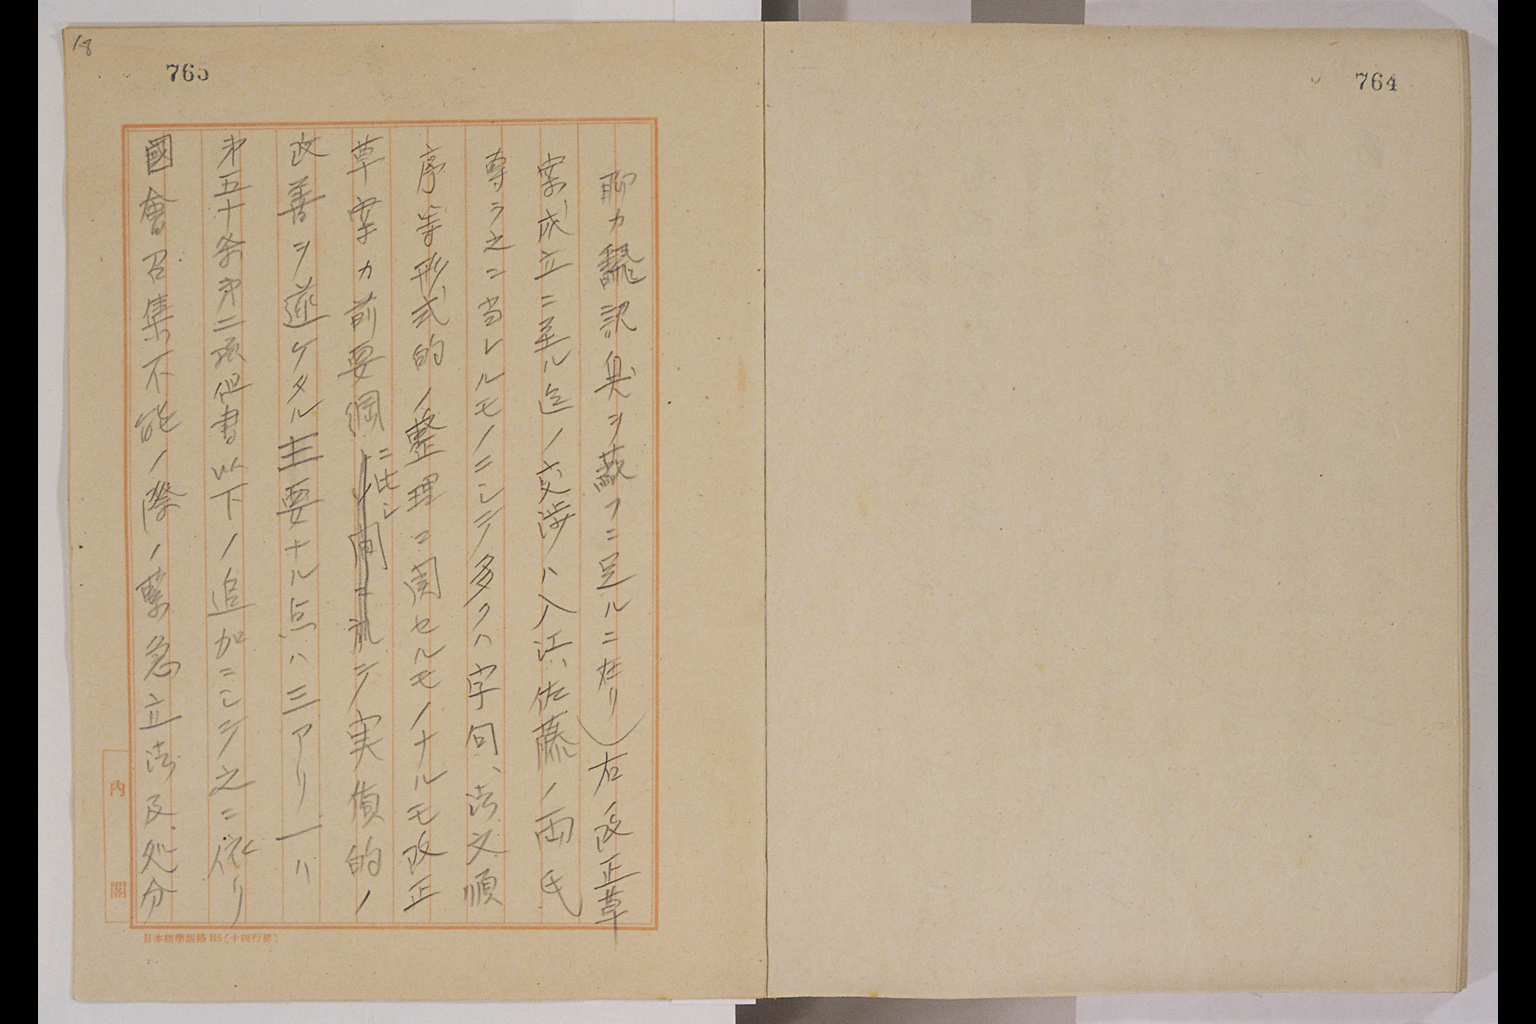 764
18
765
聊カ飜訳臭ヲ蔽フニ足ルニ在リ）右ノ改正草
案成立ニ至ル迄ノ交渉ハ入江、佐藤ノ両氏
専ラ之ニ当レルモノニシテ多クハ字句、法文順
序等形式的ノ整理ニ関セルモノナルモ改正
草案カ前要綱ニ比シテ実質的ノ
改善ヲ遂ケタル主要ナル点ハ三アリ一ハ
第五十条第二項但書以下ノ追加ニシテ之ニ依リ
國會召集不能ノ際ノ緊急立法及処分
内閣
日本標準規格B5(十四行罫)